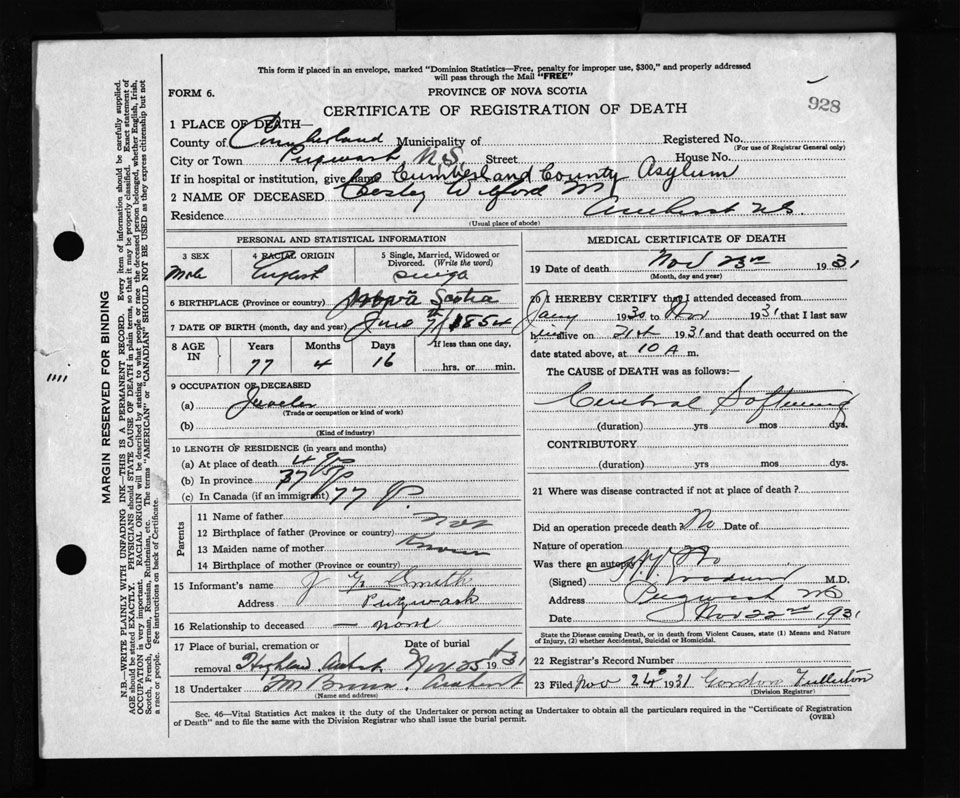 This form if placed in an envelope, marked "Dominion Statistics—Free, penalty for improper use, $300," and properly addressed
will pass through the Mail "FREE"
FORM 6.
PROVINCE OF NOVA SCOTIA
928
CERTIFICATE OF REGISTRATION OF DEATH
1 PLACE OF DEATH—
County of Cumberland Municipality of Registered No.
(For use of Registrar General only)
City or Town Pugwash N.S. Street House No.
If in hospital or institution, give name Cumberland County Asylum
2 NAME OF DECEASED Wilford
Residence Amherst N.S.
(Usual place of abode)
PERSONAL AND STATISTICAL INFORMATION
3 SEX 4 RACIAL ORIGIN 5 Single, Married, Widowed or Divorced. (Write the word)
Male English Single
6 BIRTHPLACE (Province or country) Nova Scotia
7 DATE OF BIRTH (month, day and year) 7th 1854
8 AGE IN Years Months Days If less than one day,
77 4 16 hrs. or min.
9 OCCUPATION OF DECEASED
(a) Jeweler
(Trade or occupation or kind of work)
(b)
(Kind of industry)
10 LENGTH OF RESIDENCE (in years and months)
(a) At place of death 4
(b) In province 77
(c) In Canada (if an immigrant) 77
Parents
11 Name of father Not
12 Birthplace of father (Province or country)
13 Maiden name of mother Known
14 Birthplace of mother (Province or country)
15 Informant's name J G Smith
Address Pugwash
16 Relationship to deceased — none
17 Place of burial, cremation or removal Highland Date of burial Nov 25th 1931
18 Undertaker Amherst
(Name and address)
MEDICAL CERTIFICATE OF DEATH
19 Date of death Nov 23rd 1931
(Month, day and year)
20 I HEREBY CERTIFY that I attended deceased from
Jany 1930 to Nov 1931 that I last saw
him alive on 21st 1931 and that death occurred on the
date stated above, at 10 A m.
The CAUSE of DEATH was as follows:—
Cerebral Softening
(duration) yrs mos dys.
CONTRIBUTORY
(duration) yrs mos dys.
21 Where was disease contracted if not at place of death?
Did an operation precede death? No Date of
Nature of operation
Was there an autopsy? No
(Signed) M.D.
Address Pugwash NS
Date Nov 22nd 1931
State the Disease causing Death, or in death from Violent Causes, state (1) Means and Nature
of Injury, (2) whether Accidental, Suicidal or Homicidal.
22 Registrar's Record Number
23 Filed Nov 24 1931 Gordon Fullerton
(Division Registrar)
Sec. 46—Vital Statistics Act makes it the duty of the Undertaker or person acting as Undertaker to obtain all the particulars required in the "Certificate of Registration
of Death" and to file the same with the Division Registrar who shall issue the burial permit.
(OVER)
MARGIN RESERVED FOR BINDING
N.B.—WRITE PLAINLY WITH UNFADING INK—THIS IS A PERMANENT RECORD. Every item of information should be carefully supplied.
AGE should be stated EXACTLY. PHYSICIANS should STATE CAUSE OF DEATH in plain terms, so that it may be properly classified. Exact statement of
OCCUPATION is very important. RACIAL ORIGIN will be described by stating to what people or race the deceased person belonged, whether English, Irish,
Scotch, French, German, Russian, Ruthenian, etc. The terms "AMERICAN" or "CANADIAN" SHOULD NOT BE USED as they express citizenship but not
a race or people. See instructions on back of Certificate.